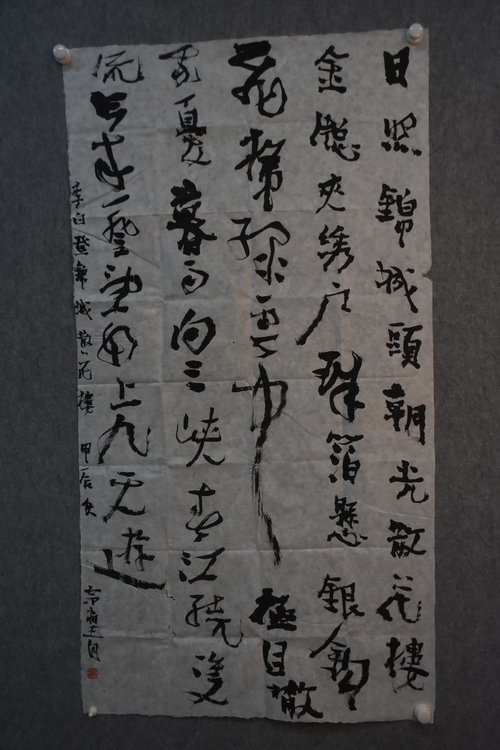 日照錦城頭朝光散花樓
金窗夾綉户珠箔懸銀鈎
飛梯绿雲中極目散
我憂暮雨向三峡春江繞雙
流今来一登望如上九天遊
李白登錦城散花樓